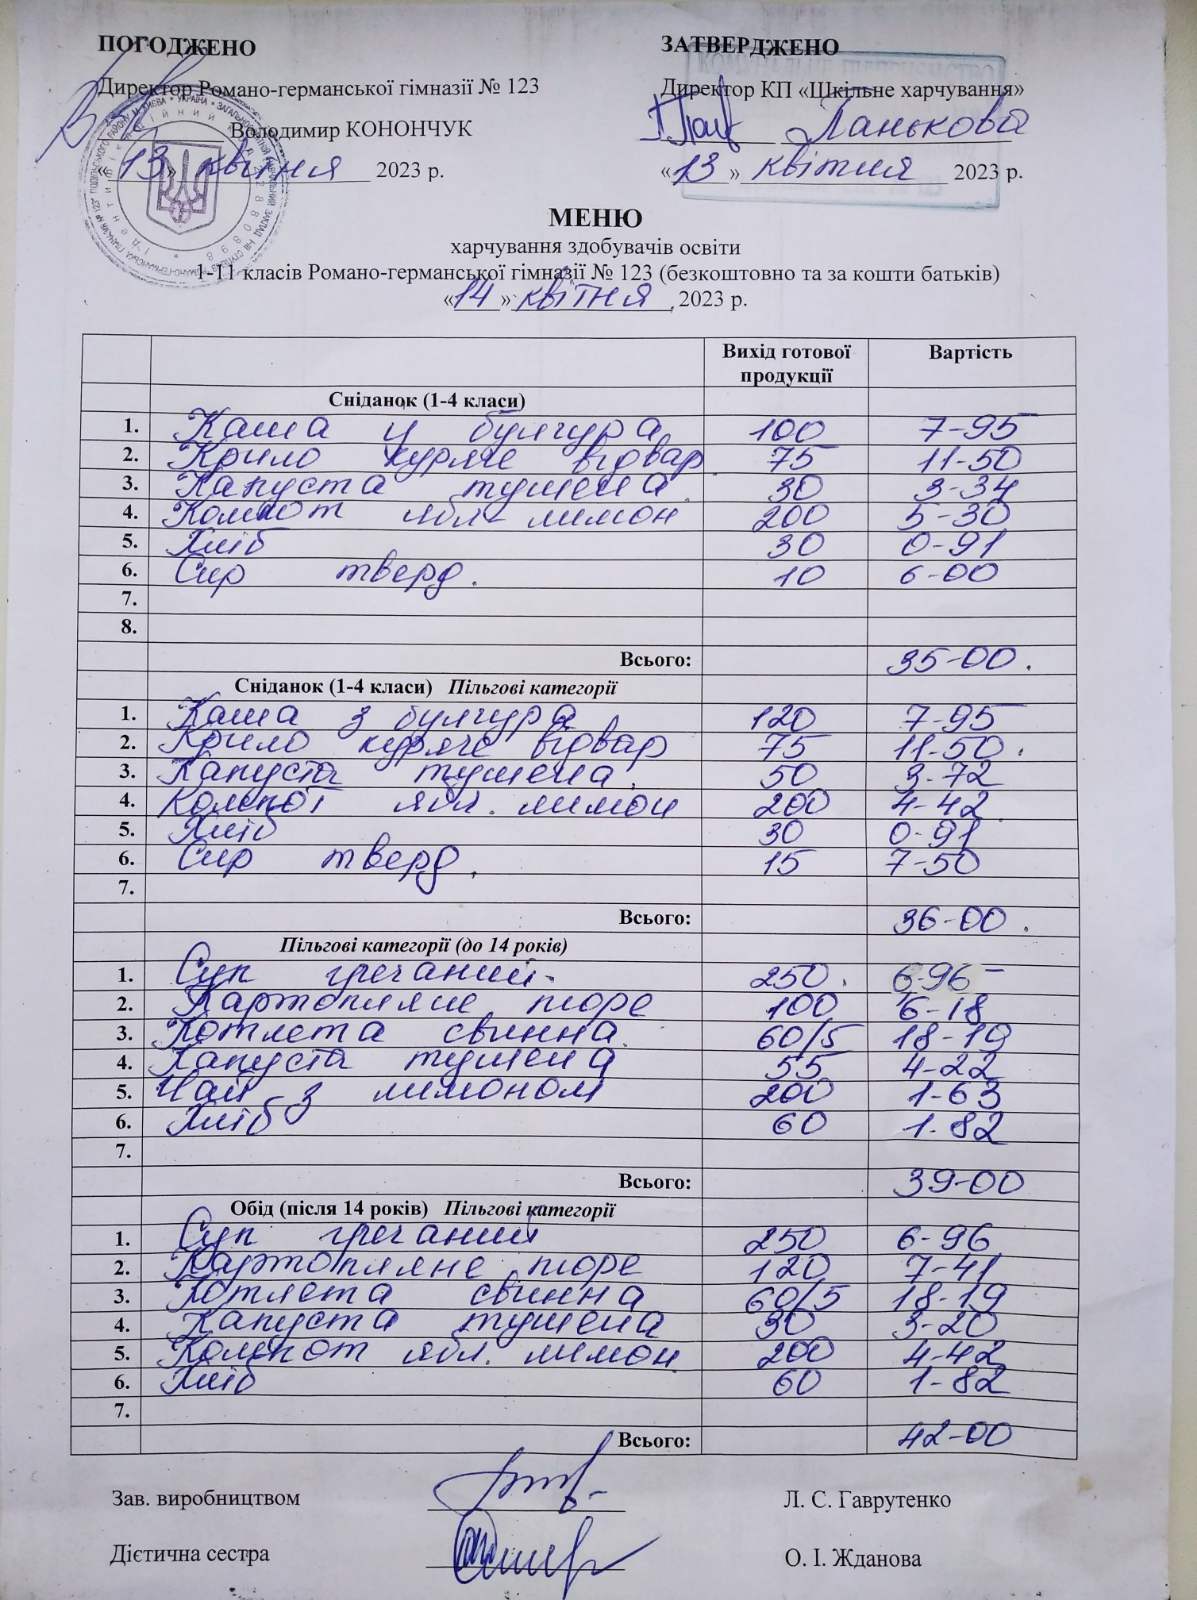 ПОГОДЖЕНО
Директор Романо-германської гімназії № 123
Володимир КОНОНЧУК
«13» квітня 2023 р.
ЗАТВЕРДЖЕНО
Директор КП «Шкільне харчування»
Ланькова
«13» квітня 2023 р.
МЕНЮ
харчування здобувачів освіти
1-11 класів Романо-германської гімназії № 123 (безкоштовно та за кошти батьків)
«14» квітня 2023 р.
Вихід готової продукції Вартість
Сніданок (1-4 класи)
1. Каша з булгура 100 7-95
2. Крило куряче відвар. 75 11-50
3. Капуста тушена 30 3-34
4. Компот ябл- лимон 200 5-30
5. Хліб 30 0-91
6. Сир тверд. 10 6-00
7.
8.
Всього: 35-00.
Сніданок (1-4 класи) Пільгові категорії
1. Каша з булгура 120 7-95
2. Крило куряче відвар 75 11-50.
3. Капуста тушена 50 3-72
4. Компот ябл. лимон 200 4-42
5. Хліб 30 0-91
6. Сир тверд. 15 7-50
7.
Всього: 36-00.
Пільгові категорії (до 14 років)
1. Суп гречаний 250. 6-96
2. Картопляне пюре 100 6-18
3. Котлета свинна 60/5 18-19
4. Капуста тушена 55 4-22
5. Чай з лимоном 200 1-63
6. Хліб 60 1-82
7.
Всього: 39-00
Обід (після 14 років) Пільгові категорії
1. Суп гречаний 250 6-96
2. Картопляне пюре 120 7-41
3. Котлета свинна 60/5 18-19
4. Капуста тушена 30 3-20
5. Компот ябл. лимон 200 4-42
6. Хліб 60 1-82
7.
Всього: 42-00
Зав. виробництвом Л. С. Гаврутенко
Дієтична сестра О. І. Жданова